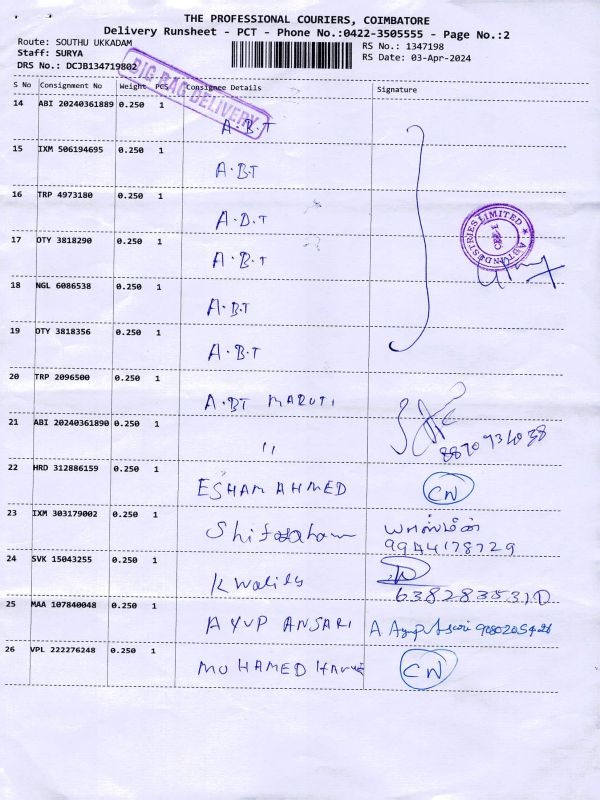 THE PROFESSIONAL COURIERS, COIMBATORE
Delivery Runsheet - PCT - Phone No.:0422-3505555 - Page No.:2
Route: SOUTHU UKKADAM
RS No.: 1347198
Staff: SURYA
RS Date: 03-Apr-2024
DRS No.: DCJB134719802
BIG BAG DELIVERY
S No Consignment No Weight PCS Consignee Details Signature
14 ABI 20240361889 0.250 1 A.B.T
15 IXM 506194695 0.250 1 A.B.T
16 TRP 4973180 0.250 1 A.B.T
ABT INDUSTRIES LIMITED
17 OTY 3818290 0.250 1 A.B.T
18 NGL 6086538 0.250 1 A.B.T
19 OTY 3818356 0.250 1 A.B.T
20 TRP 2096500 0.250 1 A.BT MARUTI
21 ABI 20240361890 0.250 1 " 8870931038
22 HRD 312886159 0.250 1 ESHAM AHMED CN
23 IXM 303179002 0.250 1 யாஸ்மீன்
9944178729
24 SVK 15043255 0.250 1 Kwality
6382835310
25 MAA 107840048 0.250 1 AYUP ANSARI A Ayup Ansari
26 VPL 222276248 0.250 1 MUHAMED CN